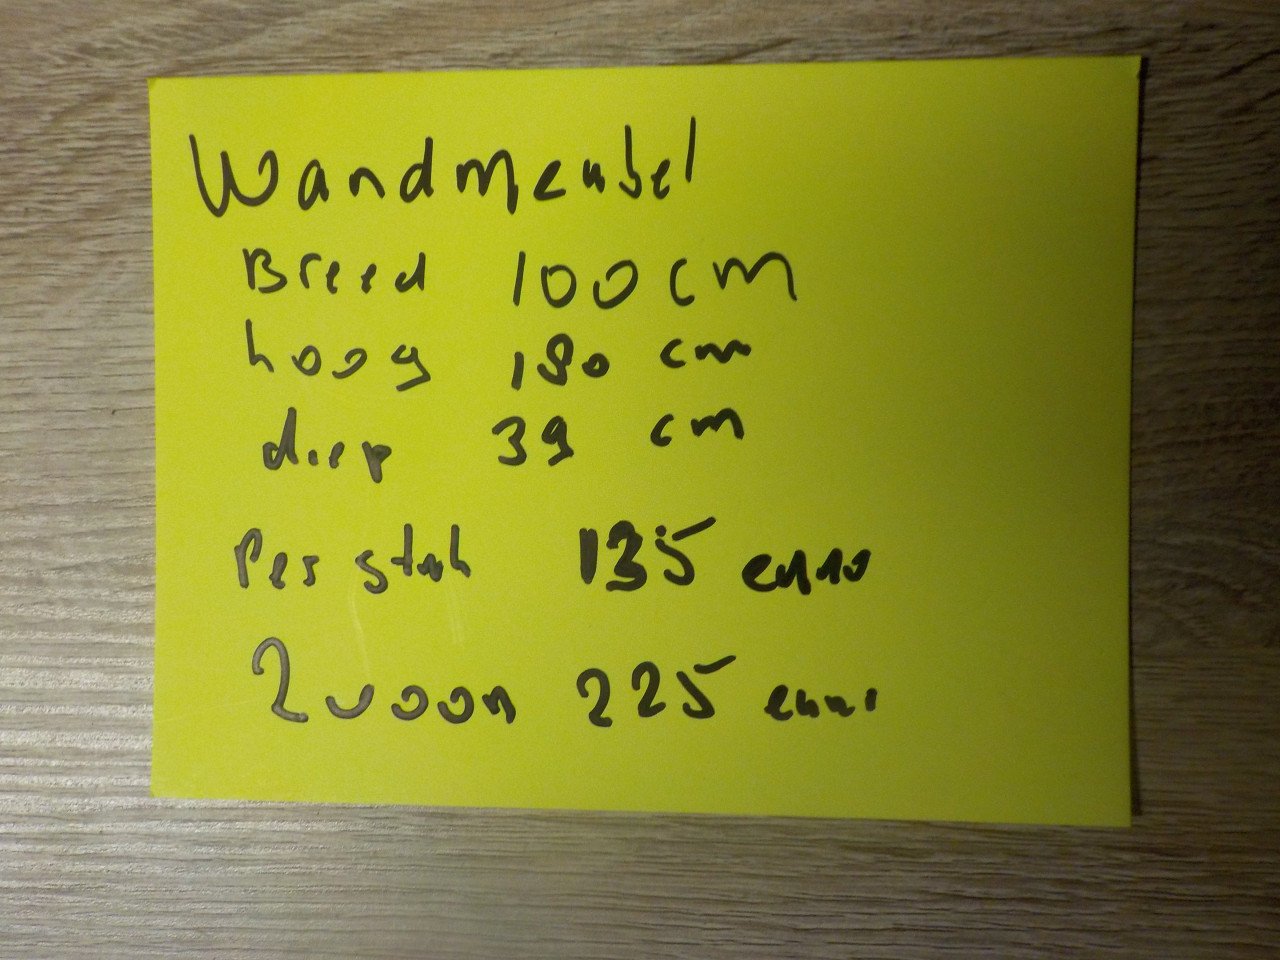 Wandmeubel
Breed 100 cm
hoog 180 cm
diep 39 cm
Per stuk 135 euro
2 voor 225 euro